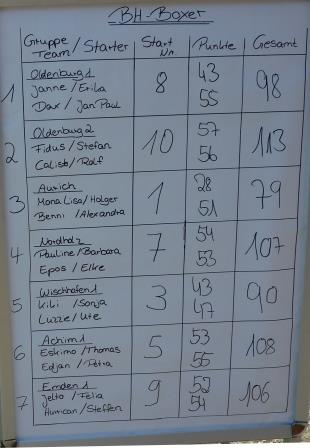 BH-Boxer
Gruppe Team / Starter Start Nr. Punkte Gesamt
1 Oldenburg 1 8 43 98
Janne / Erika 55
Dax / Jan Paul
2 Oldenburg 2 10 57 113
Fidus / Stefan 56
Calisto / Rolf
3 Aurich 1 28 79
Mona Lisa / Holger 51
Benni / Alexandra
4 Nordholz 7 54 107
Pauline / Barbara 53
Epos / Elke
5 Wischhafen 1 3 43 90
Kiki / Sonja 47
Luzzie / Ute
6 Achim 1 5 53 108
Eskimo / Thomas 55
Edjan / Petra
7 Emden 1 9 52 106
Jelto / Felia 54
Hurrican / Steffen